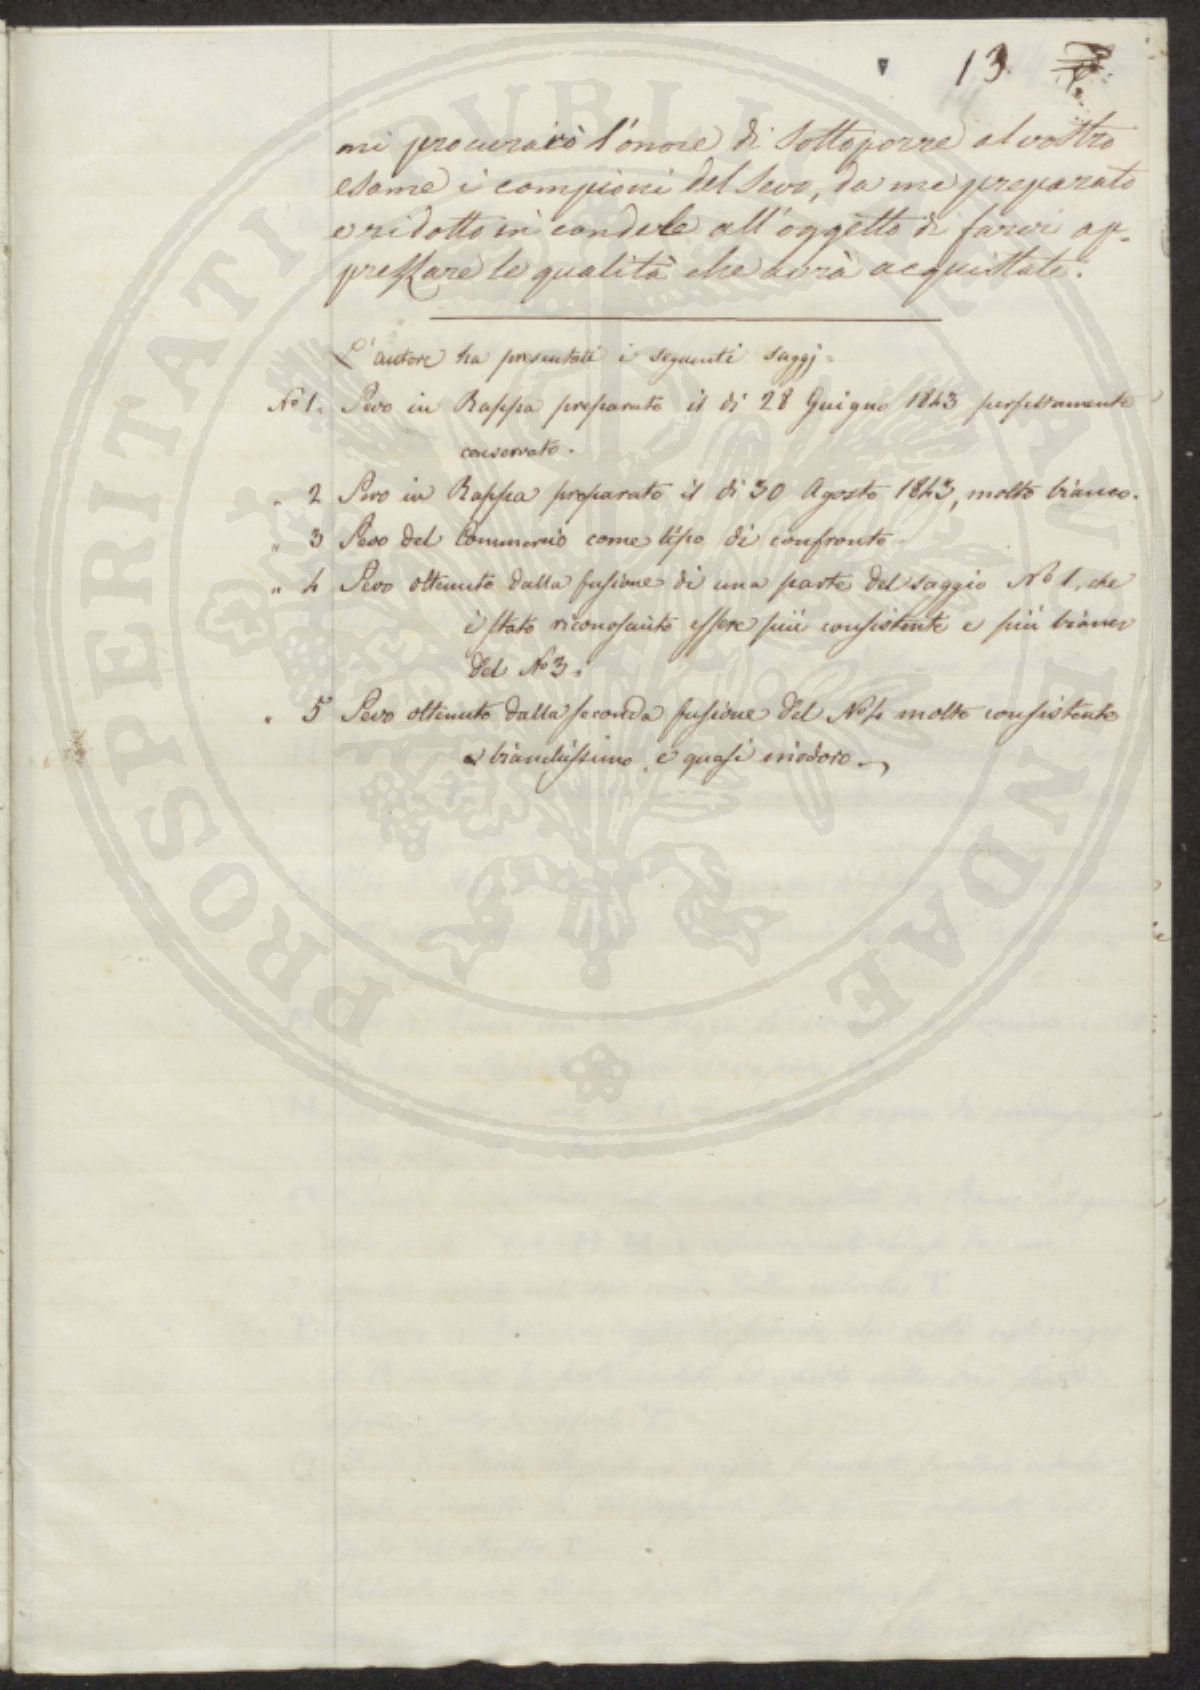 13.
mi procurarò l'onore di sottoporre al vostro
esame i campioni del sevo, da me preparato
e ridotto in candele all'oggetto di farvi ap-
prezzare le qualità che avrà acquistate.
L'autore ha presentati i seguenti saggj =
No 1. Sevo in Rappa preparato il dì 28 Guigno 1843 perfettamente
conservato.
" 2 Sevo in Rappa preparato il dì 30 Agosto 1843, molto bianco.
" 3 Sevo del Commercio come tipo di confronto
" 4 Sevo ottenuto dalla fusione di una parte del saggio No 1. che
è stato riconosciuto essere più consistente e più bianco
del No 3.
" 5 Sevo ottenuto dalla seconda fusione del No 4 molto consistente
e bianchissimo, e quasi inodoro.
PROSPERITATI PVBLICAE AVGENDAE